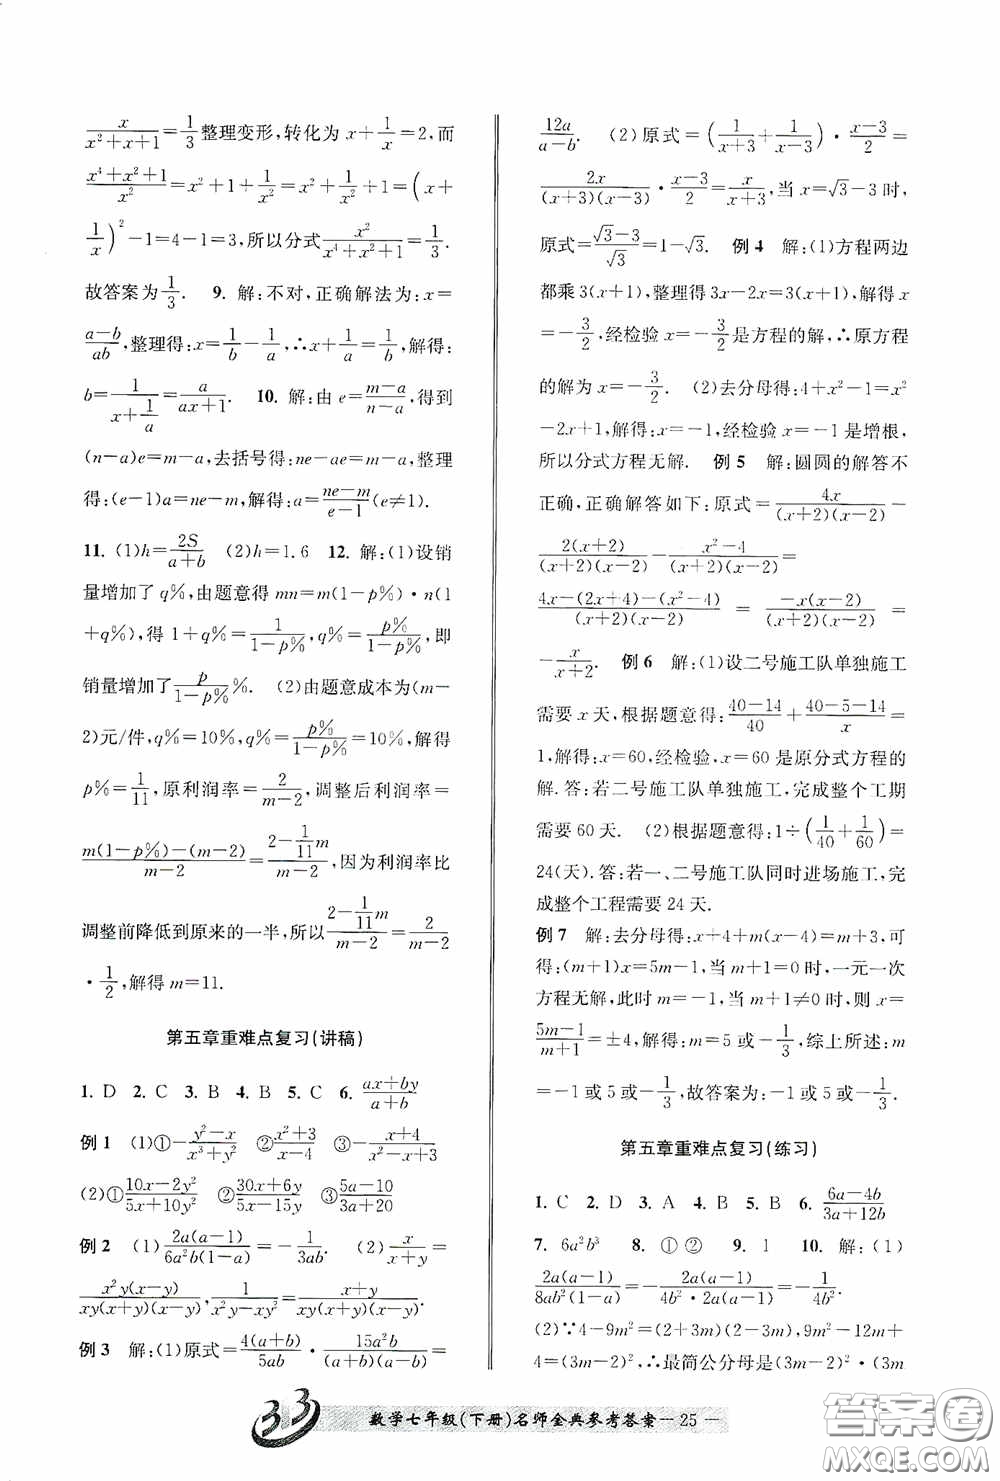 x/(x²+x+1)=1/3整理变形,转化为x+1/x=2,而
(x⁴+x²+1)/x²=x²+1+1/x²=x²+1/x²+1=(x+
1/x)²-1=4-1=3,所以分式x²/(x⁴+x²+1)=1/3.
故答案为1/3. 9. 解:不对,正确解法为:x=
(a-b)/ab,整理得:x=1/b-1/a,∴x+1/a=1/b,解得:
b=1/(x+1/a)=a/(ax+1). 10. 解:由e=(m-a)/(n-a),得到
(n-a)e=m-a,去括号得:ne-ae=m-a,整理
得:(e-1)a=ne-m,解得:a=(ne-m)/(e-1)(e≠1).
11. (1)h=2S/(a+b) (2)h=1.6 12. 解:(1)设销
量增加了q%,由题意得mn=m(1-p%)·n(1
+q%),得1+q%=1/(1-p%),q%=p%/(1-p%),即
销量增加了p/(1-p%)%. (2)由题意成本为(m-
2)元/件,q%=10%,q%=p%/(1-p%)=10%,解得
p%=1/11,原利润率=2/(m-2),调整后利润率=
(m(1-p%)-(m-2))/(m-2)=(2-1/11m)/(m-2),因为利润率比
调整前降低到原来的一半,所以(2-1/11m)/(m-2)=2/(m-2)
·1/2,解得m=11.
第五章重难点复习(讲稿)
1. D 2. C 3. B 4. B 5. C 6. (ax+by)/(a+b)
例1 (1)①-(y²-x)/(x³+y²) ②(x²+3)/(x-4) ③-(x+4)/(x²-x+3)
(2)①(10x-2y²)/(5x+10y²) ②(30x+6y)/(5x-15y) ③(5a-10)/(20+2a)
例2 (1)2a(a-1)/6a²b(1-a)=-1/3ab. (2)x/(x+y)=
x²y(x-y)/xy(x+y)(x-y),1/(x²y-xy²)=(x+y)/xy(x+y)(x-y).
例3 解:(1)原式=4(a+b)/5ab·15a²b/(a+b)(a-b)=
12a/(a-b). (2)原式=(1/(x+3)+1/(x-3))·(x-3)/2=
2x/(x+3)(x-3)·(x-3)/2=x/(x+3),当x=√3-3时,
原式=(√3-3)/√3=1-√3. 例4 解:(1)方程两边
都乘3(x+1),整理得3x-2x=3(x+1),解得x
=-3/2,经检验x=-3/2是方程的解,∴原方程
的解为x=-3/2. (2)去分母得:4+x²-1=x²
-2x+1,解得:x=-1,经检验x=-1是增根,
所以分式方程无解. 例5 解:圆圆的解答不
正确,正确解答如下:原式=4x/(x+2)(x-2)-
2(x+2)/(x+2)(x-2)-(x²-4)/(x+2)(x-2)=
(4x-(2x+4)-(x²-4))/(x+2)(x-2)=-x(x-2)/(x+2)(x-2)=
-x/(x+2). 例6 解:(1)设二号施工队单独施工
需要x天,根据题意得:(40-14)/40+(40-5-14)/x=
1,解得:x=60,经检验,x=60是原分式方程的
解.答:若二号施工队单独施工,完成整个工期
需要60天. (2)根据题意得:1÷(1/40+1/60)=
24(天).答:若一、二号施工队同时进场施工,完
成整个工程需要24天.
例7 解:去分母得:x+4+m(x-4)=m+3,可
得:(m+1)x=5m-1,当m+1=0时,一元一次
方程无解,此时m=-1,当m+1≠0时,则x=
(5m-1)/(m+1)=±4,解得:m=5或-1/3,综上所述:m
=-1或5或-1/3,故答案为:-1或5或-1/3.
第五章重难点复习(练习)
1. C 2. D 3. A 4. B 5. B 6. (6a-4b)/(3a+12b)
7. 6a²b³ 8. ①② 9. 1 10. 解:(1)
2a(a-1)/8ab²(1-a)=-2a(a-1)/4b²·2a(a-1)=-1/4b².
(2)∵4-9m²=(2+3m)(2-3m),9m²-12m+
4=(3m-2)²,∴最简公分母是(3m-2)²·(3m
33 数学七年级(下册)名师金典参考答案—25—
答案卷
MXQE.COM